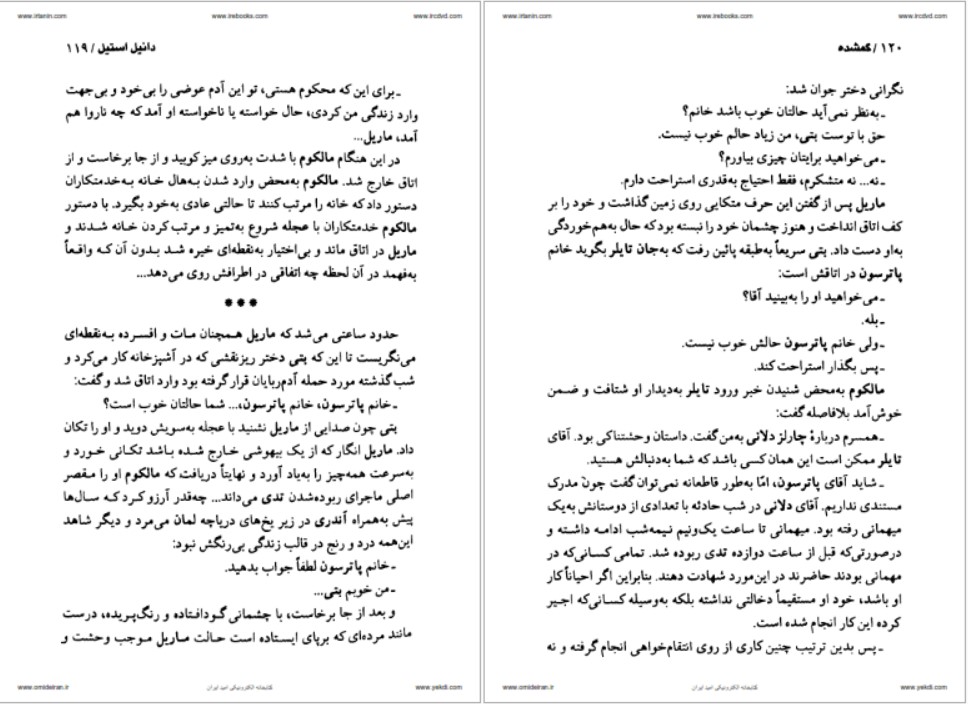 www.irtanin.com www.irebooks.com www.ircdvd.com
دانیل استیل / ۱۱۹
ـ برای این که محکوم هستی، تو این آدم عوضی را بی‌خود و بی‌جهت
وارد زندگی من کردی، حال خواسته یا ناخواسته او آمد که چه ناروا هم
آمد، ماریل...
در این هنگام مالکوم با شدت به‌روی میز کوبید و از جا برخاست و از
اتاق خارج شد. مالکوم به‌محض وارد شدن به‌هال خانه به‌خدمتکاران
دستور داد که خانه را مرتب کنند تا حالتی عادی به‌خود بگیرد. با دستور
مالکوم خدمتکاران با عجله شروع به‌تمیز و مرتب کردن خانه شدند و
ماریل در اتاق ماند و بی‌اختیار به‌نقطه‌ای خیره شد بدون آن که واقعاً
به‌فهمد در آن لحظه چه اتفاقی در اطرافش روی می‌دهد...
***
حدود ساعتی می‌شد که ماریل همچنان مات و افسرده به‌نقطه‌ای
می‌نگریست تا این که پتی دختر ریزنقشی که در آشپزخانه کار می‌کرد و
شب گذشته مورد حمله آدم‌ربایان قرار گرفته بود وارد اتاق شد و گفت:
ـ خانم پاترسون، خانم پاترسون،... شما حالتان خوب است؟
پتی چون صدایی از ماریل نشنید با عجله به‌سویش دوید و او را تکان
داد. ماریل انگار که از یک بیهوشی خارج شده باشد تکانی خورد و
به‌سرعت همه‌چیز را به‌یاد آورد و نهایتاً دریافت که مالکوم او را مقصر
اصلی ماجرای ربوده‌شدن تدی می‌داند... چه‌قدر آرزو کرد که سال‌ها
پیش به‌همراه آندری در زیر یخ‌های دریاچه لمان می‌مرد و دیگر شاهد
این‌همه درد و رنج در قالب زندگی بی‌رنگش نبود:
ـ خانم پاترسون لطفاً جواب بدهید.
ـ من خوبم بتی...
و بعد از جا برخاست، با چشمانی گودافتاده و رنگ‌پریده، درست
مانند مرده‌ای که برپای ایستاده است حالت ماریل موجب وحشت و
www.omideiran.ir کتابخانه الکترونیکی امید ایران www.yekdl.com
www.irtanin.com www.irebooks.com www.ircdvd.com
۱۲۰ / گمشده
نگرانی دختر جوان شد:
ـ به‌نظر نمی‌آید حالتان خوب باشد خانم؟
حق با توست بتی، من زیاد حالم خوب نیست.
ـ می‌خواهید برایتان چیزی بیاورم؟
ـ نه... نه متشکرم، فقط احتیاج به‌قدری استراحت دارم.
ماریل پس از گفتن این حرف متکایی روی زمین گذاشت و خود را بر
کف اتاق انداخت و هنوز چشمان خود را نبسته بود که حال به‌هم‌خوردگی
به‌او دست داد. بتی سریعاً به‌طبقه پائین رفت که به‌جان تایلر بگوید خانم
پاترسون در اتاقش است:
ـ می‌خواهید او را به‌بینید آقا؟
ـ بله.
ـ ولی خانم پاترسون حالش خوب نیست.
ـ پس بگذار استراحت کند.
مالکوم به‌محض شنیدن خبر ورود تایلر به‌دیدار او شتافت و ضمن
خوش‌آمد بلافاصله گفت:
ـ همسرم دربارهٔ چارلز دلانی به‌من گفت. داستان وحشتناکی بود. آقای
تایلر ممکن است این همان کسی باشد که شما به‌دنبالش هستید.
ـ شاید آقای پاترسون، امّا به‌طور قاطعانه نمی‌توان گفت چون مدرک
مستندی نداریم. آقای دلانی در شب حادثه با تعدادی از دوستانش به‌یک
میهمانی رفته بود. میهمانی تا ساعت یک‌ونیم نیمه‌شب ادامه داشته و
درصورتی‌که قبل از ساعت دوازده تدی ربوده شد. تمامی کسانی‌که در
مهمانی بودند حاضرند در این‌مورد شهادت دهند. بنابراین اگر احیاناً کار
او باشد، خود او مستقیماً دخالتی نداشته بلکه به‌وسیله کسانی‌که اجیر
کرده این کار انجام شده است.
ـ پس بدین ترتیب چنین کاری از روی انتقام‌خواهی انجام گرفته و نه
www.omideiran.ir کتابخانه الکترونیکی امید ایران www.yekdl.com